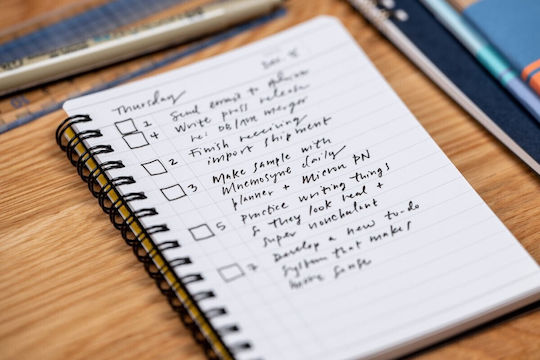 Thursday
Dec 5
1 Send email to advisor
4 Write press release
re: DB/JAM merger
2 Finish receiving
import shipment
3 Make sample with
Mnemosyne daily
planner + Micron PN
5 practice writing things
so they look real +
super nonchalant
7 Develop a new to-do
system that makes
more sense